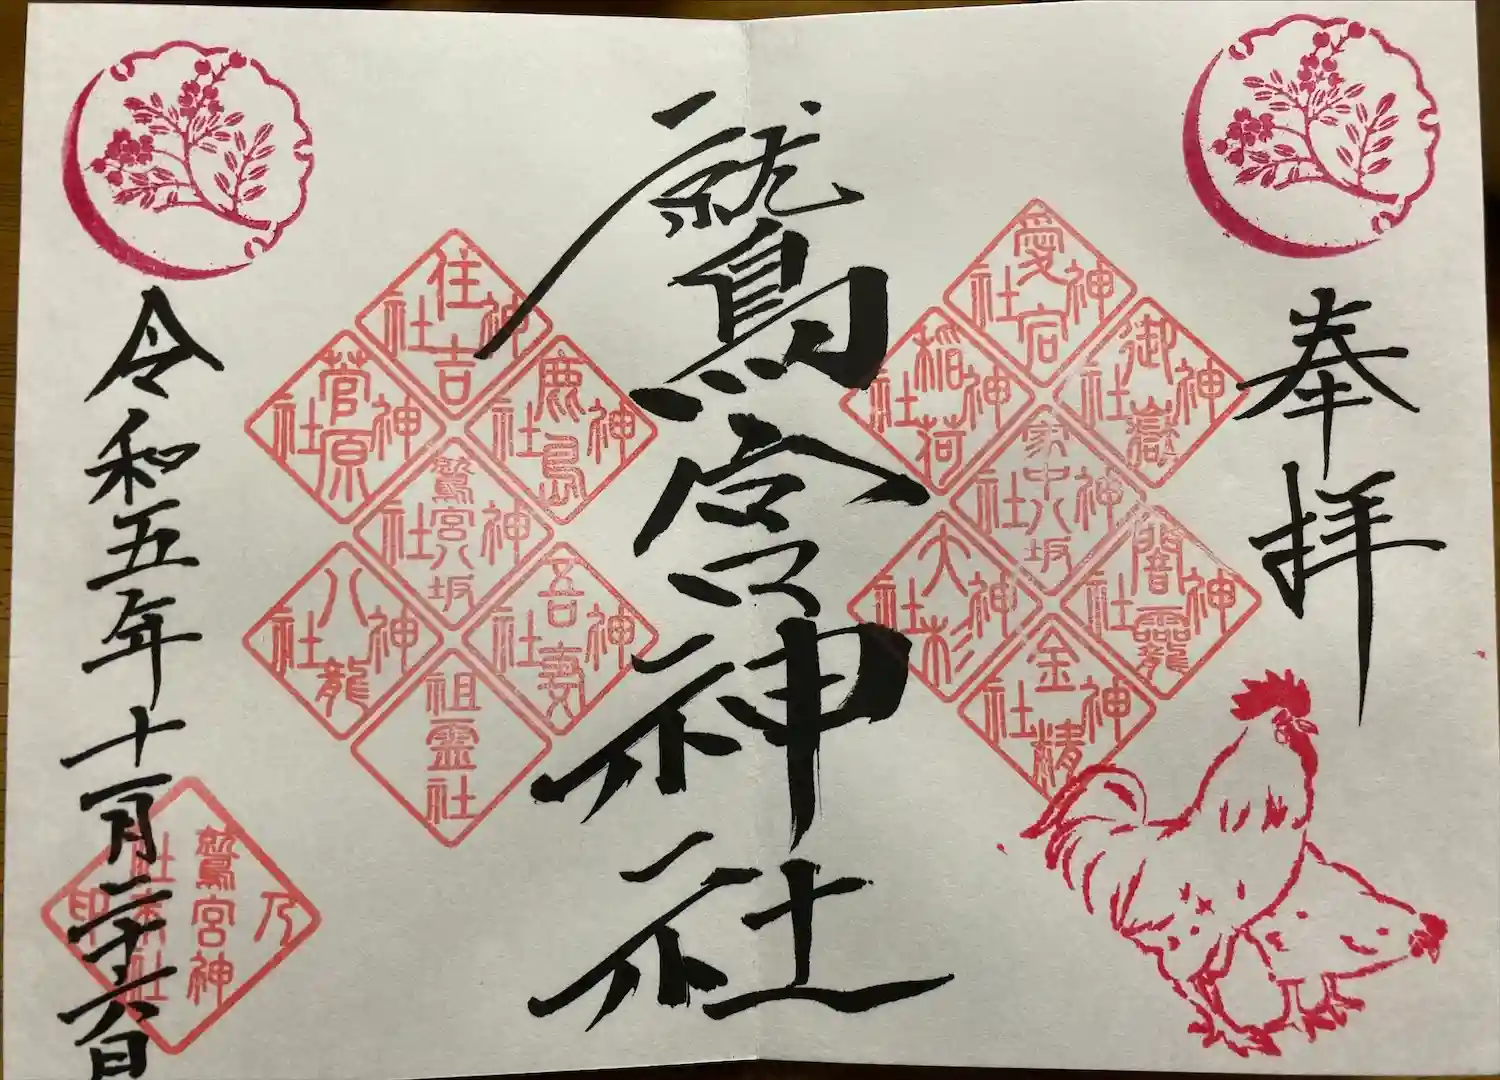 奉拝
愛宕神社
御嶽神社
稲荷神社
家中八坂神社
闇龗神社
大杉神社
金精神社
鷲宮神社
住吉神社
鹿島神社
菅原神社
鷲宮八坂神社
吾妻神社
八龍神社
祖霊社
令和五年十一月二十六日
鷲宮神社